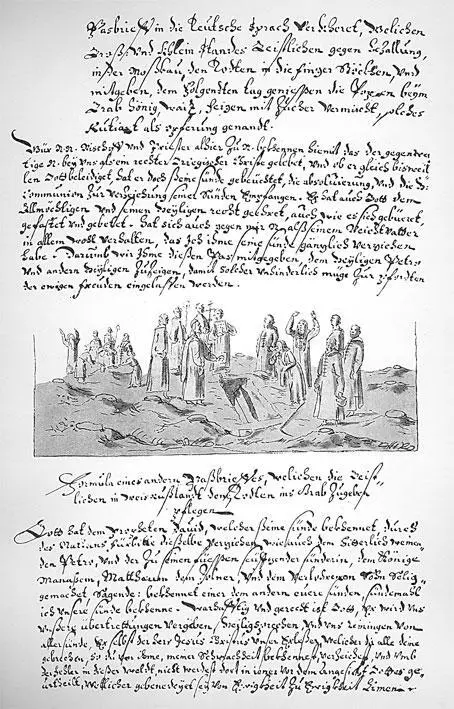 Pasbrieff in die Teutsche sprach verdieret, welichen
Groß: und Khlein Standes Geistlichen gegen bezallung,
in der Moskau, den Todten in die finger Stöckhen, und
mitgeben, dem folgendten tag geniessen die Popen beym
Grab hönig, waiz, feigen mit Zucher vermischt, solches
Kutiam als opferung genandt.
Wür N. N. Bischoff und Priester alhier zu N. bekhennen hiemit das der gegenwer
tige N. bey uns als ein rechter Griegischer Christ gelebet, und ob er gleich bisweil
len Gott beleidiget hat er doch seine sünde gebeuchtet, die absoluzierung, und die H:
Communion zur verzeichung seiner Sünden Empfangen. Er hat auch Gott dem
Allmechtigen und seinen Heyligen recht geehret, auch wie es sich gebüert
gefastet und gebettet. hat sich auch gegen mir N. als seinem Beichtvatter
in allem wohl verhalten, das Ich ihme seine sünde gänzlich verziehen
habe. Darumb wir ihme diesen Pas mitgegeben, dem Heyligen Petro
und andern Heyligen Zuzeigen, damit solcher unhinderlich müge zur pforten
der ewigen freuden eingelassen werden.
Formula eines andern Paßbrieffes, welichen die Geist-
lichen in weis Rußlandt den Todten ins Grab zugeben
pflegen
Gott hat dem Propheten David, welcher seine sünde bekhennet, durch
des Natans fürbitte dieselbe verziehen, wie auch dem bitterlich weinen-
den Petro, und der zu seinen füessen seuftzender sünderin, dem Könige
Manassem, Matthaeum dem Zolner, und dem verlohrnen Sohn Selig
gemachet Sagende: bekhennet einer dem andern eüere sünden, sindemahl
ich unsere sünde bekhenne. warhafftig und gerecht ist Gott, Er wird uns
unsere übertrettungen vergeben, heiligsprechen und uns reinigen von
aller sünde, Er selbst der herr Jesus Christus unser Erlöser, welicher da alle deine
gebrechen, so du vor ihme, meiner schwachheit bekhennest, verzeichet, und umb
der fehler in dieser weldt, nicht werdest dort in iener vor dem angesicht Gottes ge-
urtheilt, welicher gebenedeyet sey von Ewigkheit zu Ewigkheit Amen